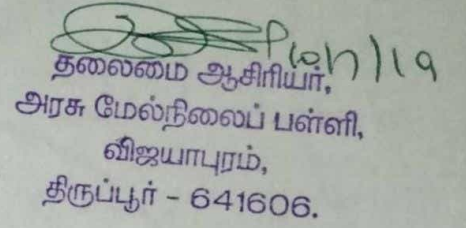 தலைமை ஆசிரியர்,
அரசு மேல்நிலைப் பள்ளி,
விஜயாபுரம்,
திருப்பூர் - 641606.